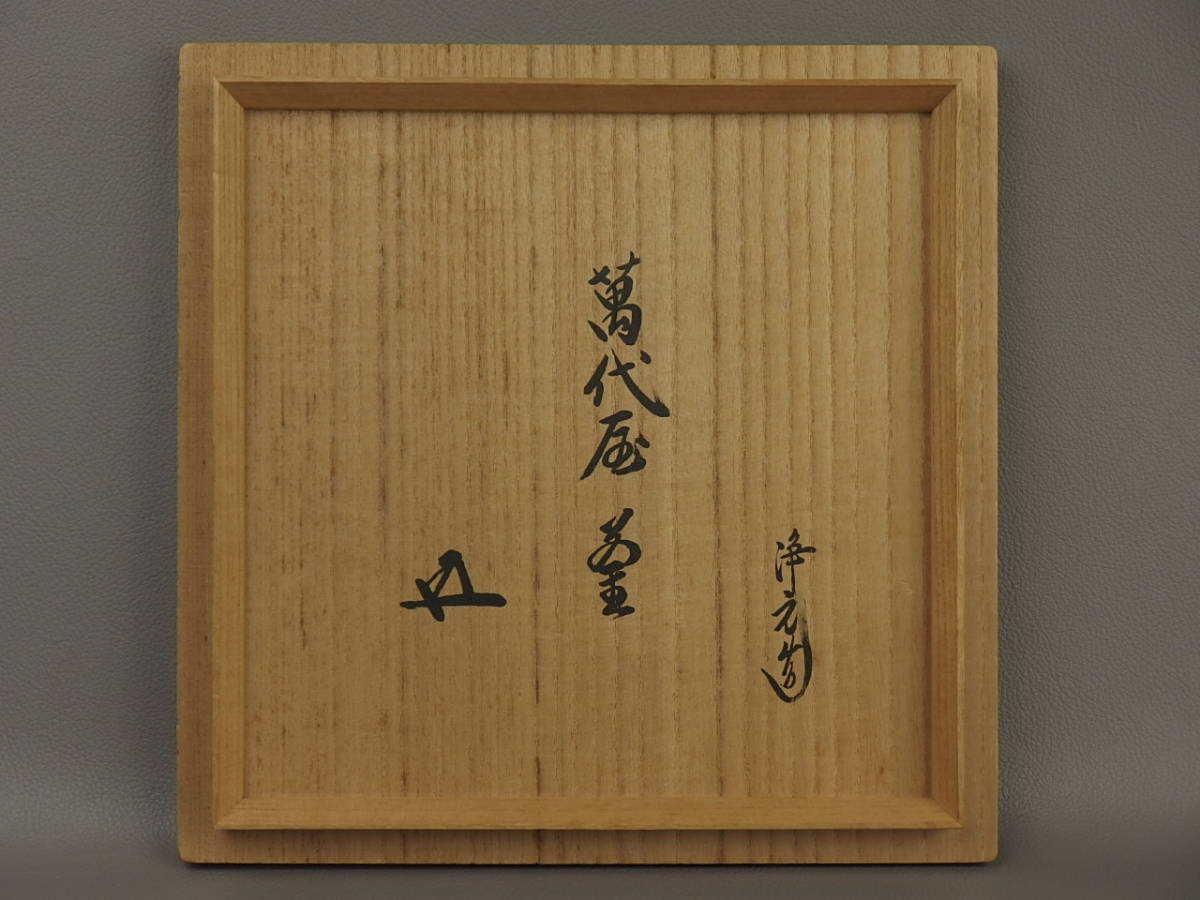 浄元造
萬代屋 釜